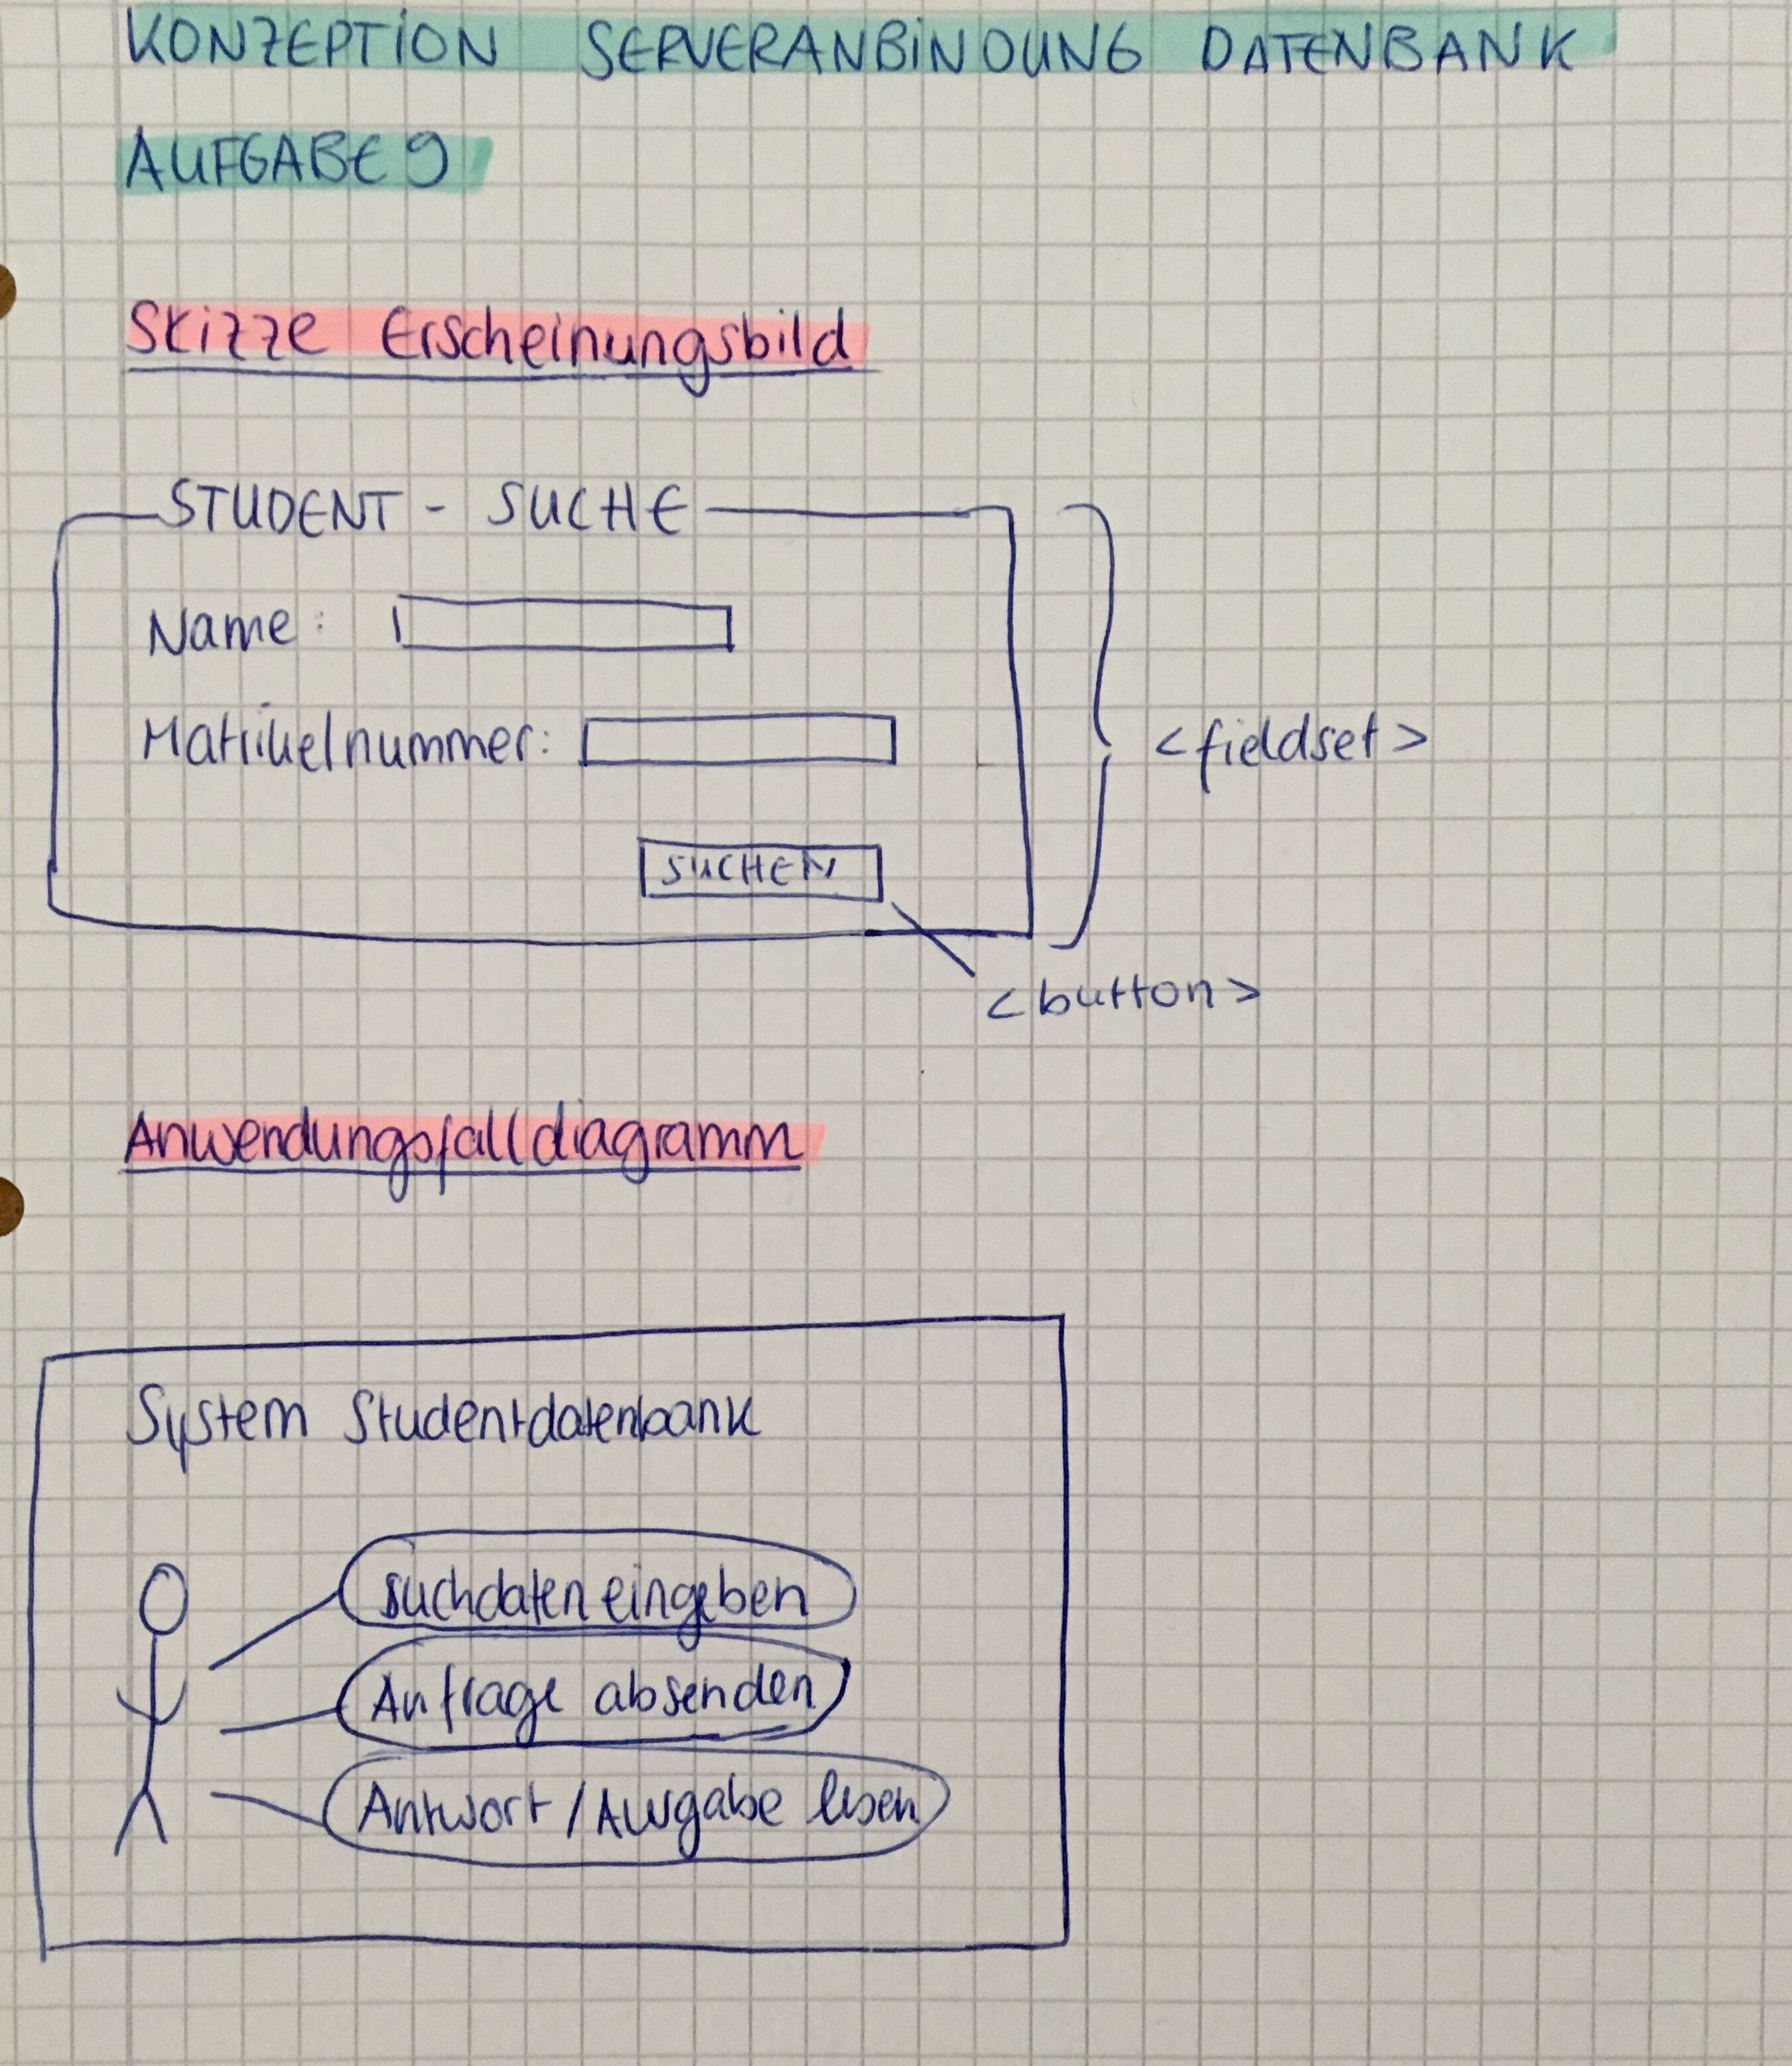 KONZEPTION SERVERANBINDUNG DATENBANK
AUFGABE 9
Skizze Erscheinungsbild
STUDENT - SUCHE
Name:
Matrikelnummer:
<fieldset>
SUCHEN
<button>
Anwendungsfalldiagramm
System Studentdatenbank
Suchdaten eingeben
Anfrage absenden
Antwort/Ausgabe lesen